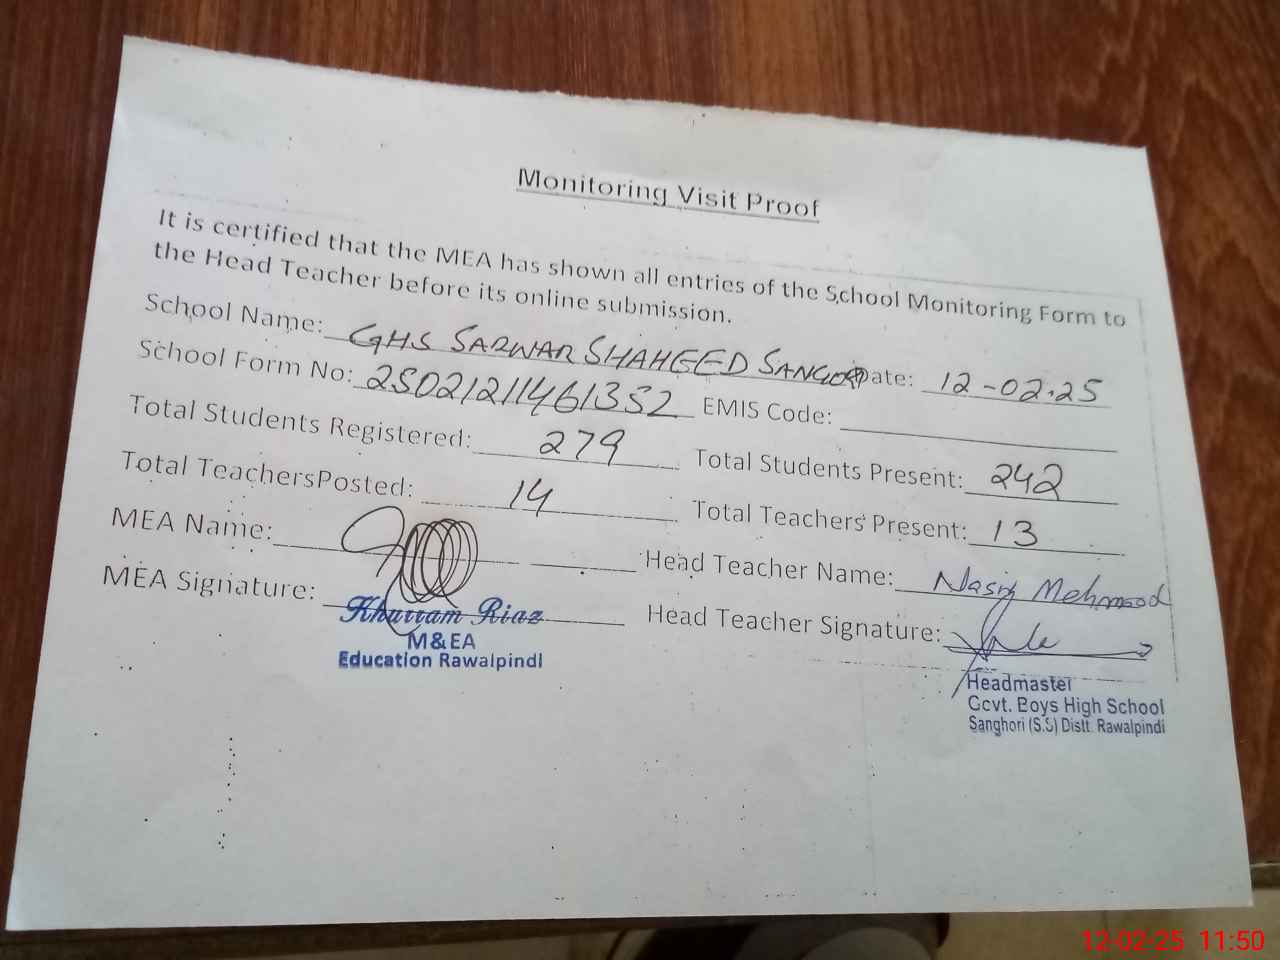 Monitoring Visit Proof
It is certified that the MEA has shown all entries of the School Monitoring Form to
the Head Teacher before its online submission.
School Name: GHS SARWAR SHAHEED Date: 12-02-25
School Form No: 250212114613S2 EMIS Code:
Total Students Registered: 279 Total Students Present: 242
Total TeachersPosted: 14 Total Teachers Present: 13
MEA Name: Head Teacher Name: Mehmood
MEA Signature: Head Teacher Signature:
Khurram Riaz
M&EA
Education Rawalpindi
Headmaster
Govt. Boys High School
Sanghori (S.S) Distt. Rawalpindi
12-02-25 11:50